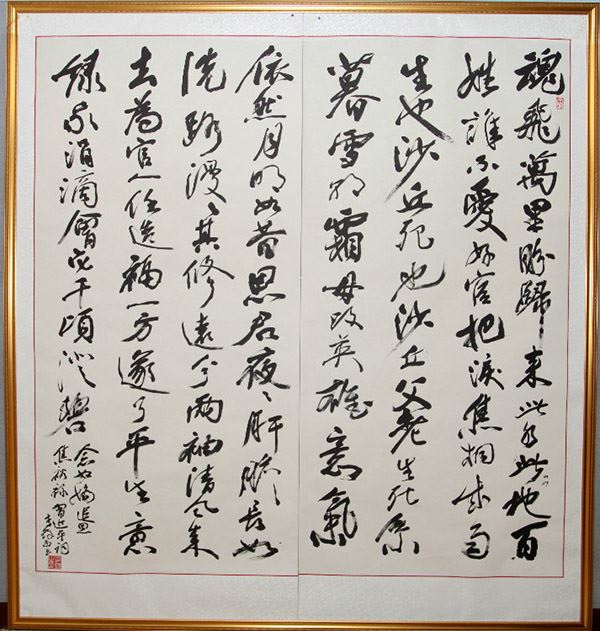 魂飛萬里盼歸來此水此地百
姓誰不愛好官把淚焦桐成雨
生也沙丘死也沙丘父老生死系
暮雪朝霜毋改英雄意氣
依然月明如昔思君夜々肝膽長如
洗路漫々其修遠兮兩袖清風來
去為官一任造福一方遂了平生意
綠我涓滴會它千頃澄碧
念奴嬌追思
焦裕祿習近平詞